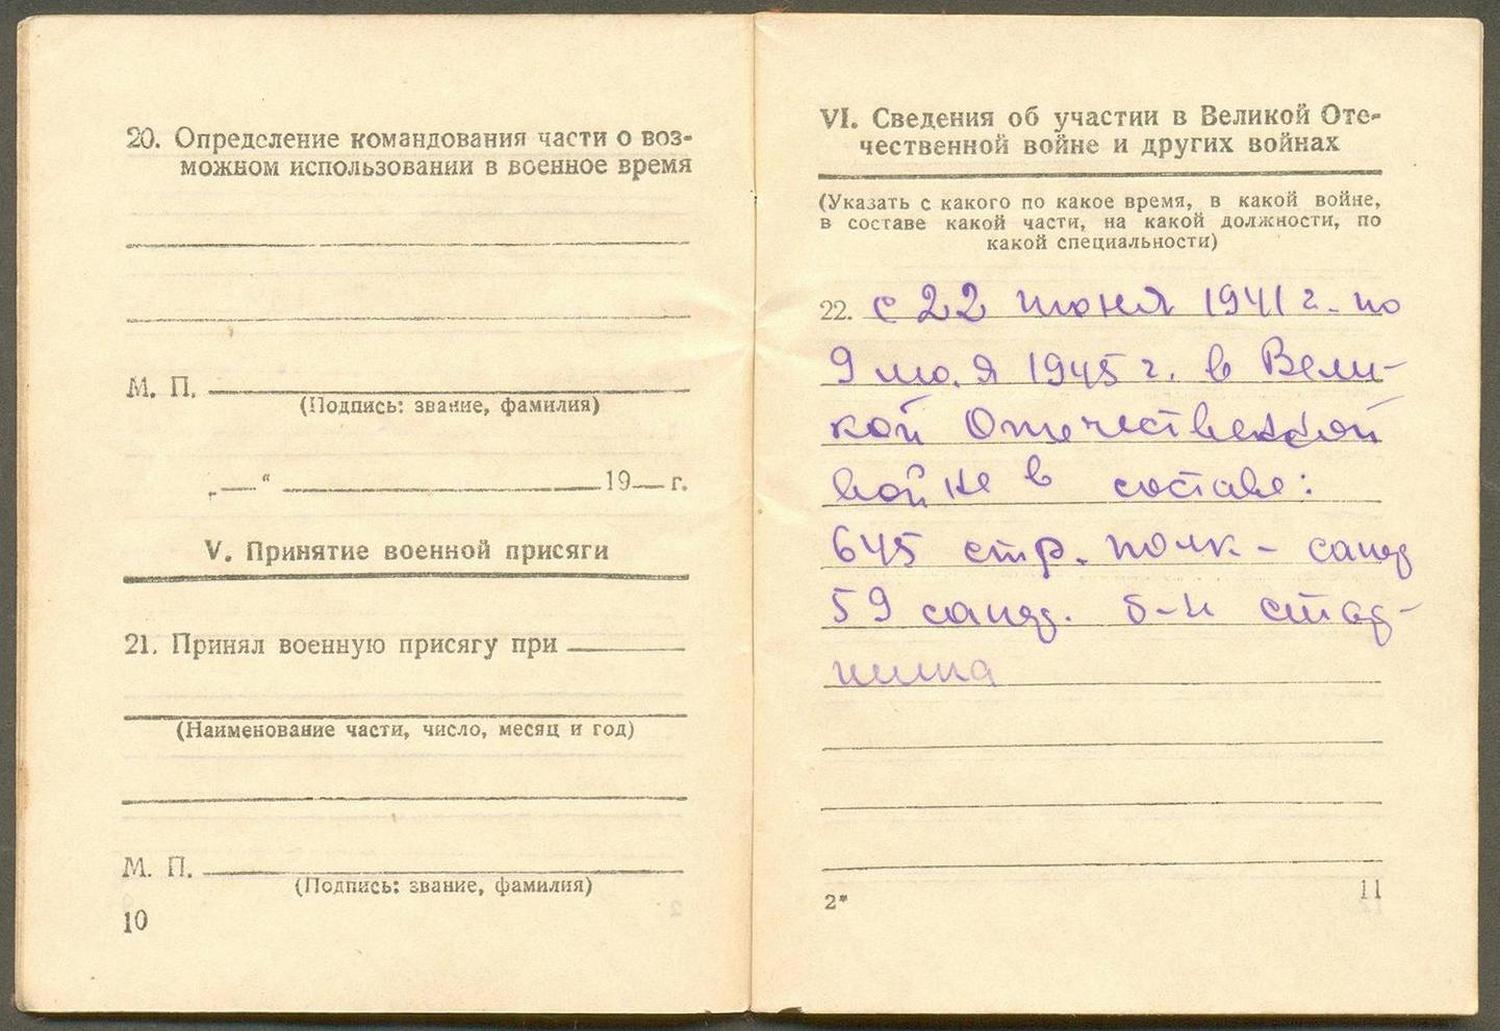 20. Определение командования части о воз-
можном использовании в военное время
М. П.
(Подпись: звание, фамилия)
„—“ 19— г.
V. Принятие военной присяги
21. Принял военную присягу при
(Наименование части, число, месяц и год)
М. П.
(Подпись: звание, фамилия)
10
VI. Сведения об участии в Великой Оте-
чественной войне и других войнах
(Указать с какого по какое время, в какой войне,
в составе какой части, на какой должности, по
какой специальности)
22. с 22 июня 1941 г. по
9 мая 1945 г. в Вели-
кой Отечественной
войне в составе:
645 стр. полк -
59 б-н
2*
11